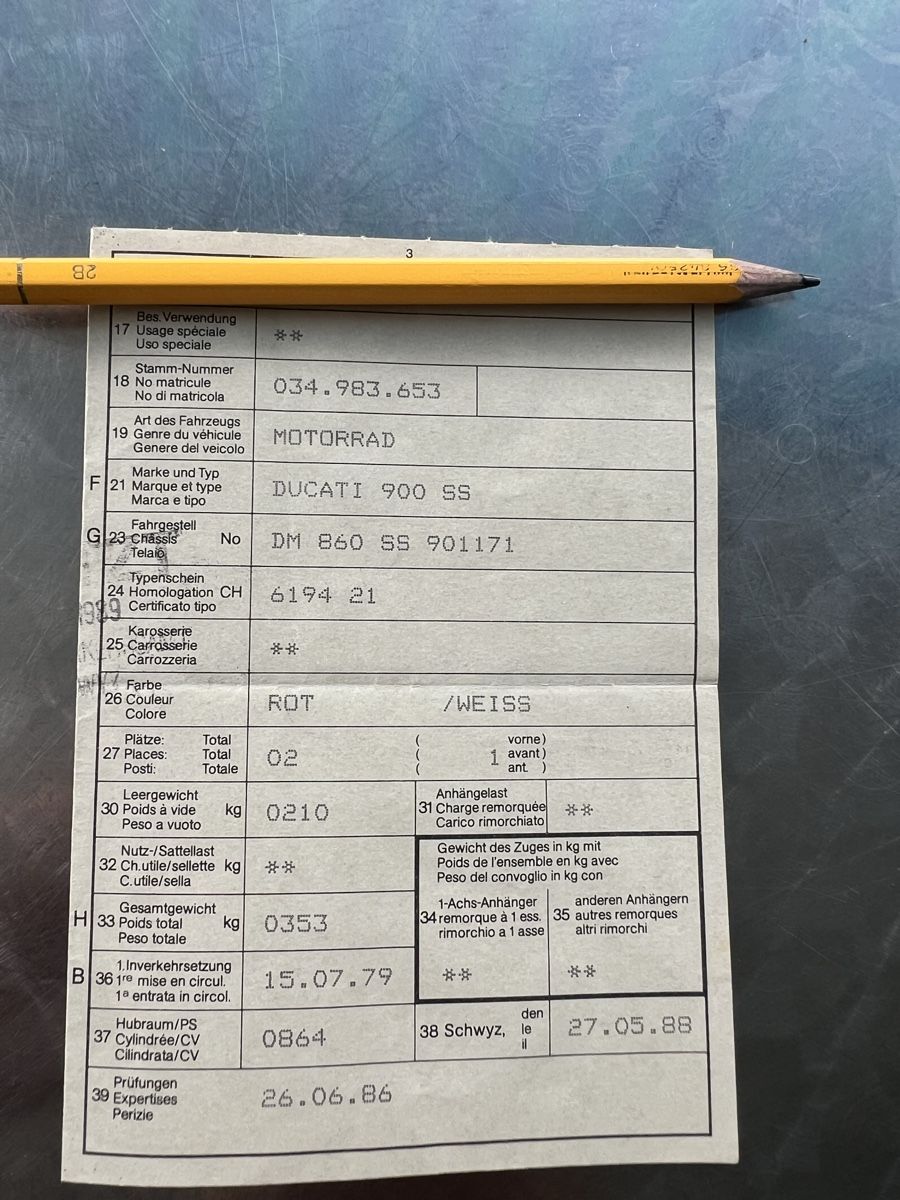 3
2B
17 Bes.Verwendung
Usage spéciale
Uso speciale
**
18 Stamm-Nummer
No matricule
No di matricola
034.983.653
19 Art des Fahrzeugs
Genre du véhicule
Genere del veicolo
MOTORRAD
F 21 Marke und Typ
Marque et type
Marca e tipo
DUCATI 900 SS
G 23 Fahrgestell
Châssis No
Telaio
DM 860 SS 901171
24 Typenschein
Homologation CH
Certificato tipo
6194 21
1989
25 Karosserie
Carrosserie
Carrozzeria
**
26 Farbe
Couleur
Colore
ROT /WEISS
27 Plätze: Total
Places: Total
Posti: Totale
02
( vorne)
( 1 avant)
( ant. )
30 Leergewicht
Poids à vide kg
Peso a vuoto
0210
31 Anhängelast
Charge remorquée
Carico rimorchiato
**
32 Nutz-/Sattellast
Ch.utile/sellette kg
C.utile/sella
**
Gewicht des Zuges in kg mit
Poids de l'ensemble en kg avec
Peso del convoglio in kg con
H 33 Gesamtgewicht
Poids total kg
Peso totale
0353
34 1-Achs-Anhänger
remorque à 1 ess.
rimorchio a 1 asse
**
35 anderen Anhängern
autres remorques
altri rimorchi
**
B 36 1.Inverkehrsetzung
1re mise en circul.
1a entrata in circol.
15.07.79
37 Hubraum/PS
Cylindrée/CV
Cilindrata/CV
0864
38 Schwyz, den
le
il
27.05.88
39 Prüfungen
Expertises
Perizie
26.06.86